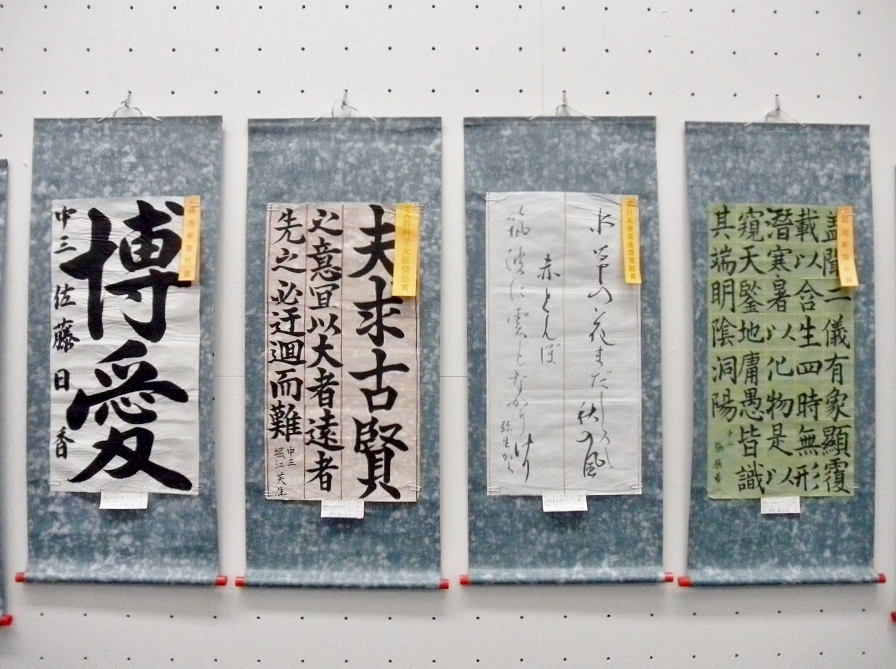 博愛
中三 佐藤日香
夫求古賢
之意宜以大者遠者
先之必迂迴而難
中三
水草の花まだしろし
秋の風
赤とんぼ
筑波に雲もなかりけり
蓋聞二儀有象顯覆
載以含生四時無形
潛寒暑以化物是以
窺天鑒地庸愚皆識
其端明陰洞陽